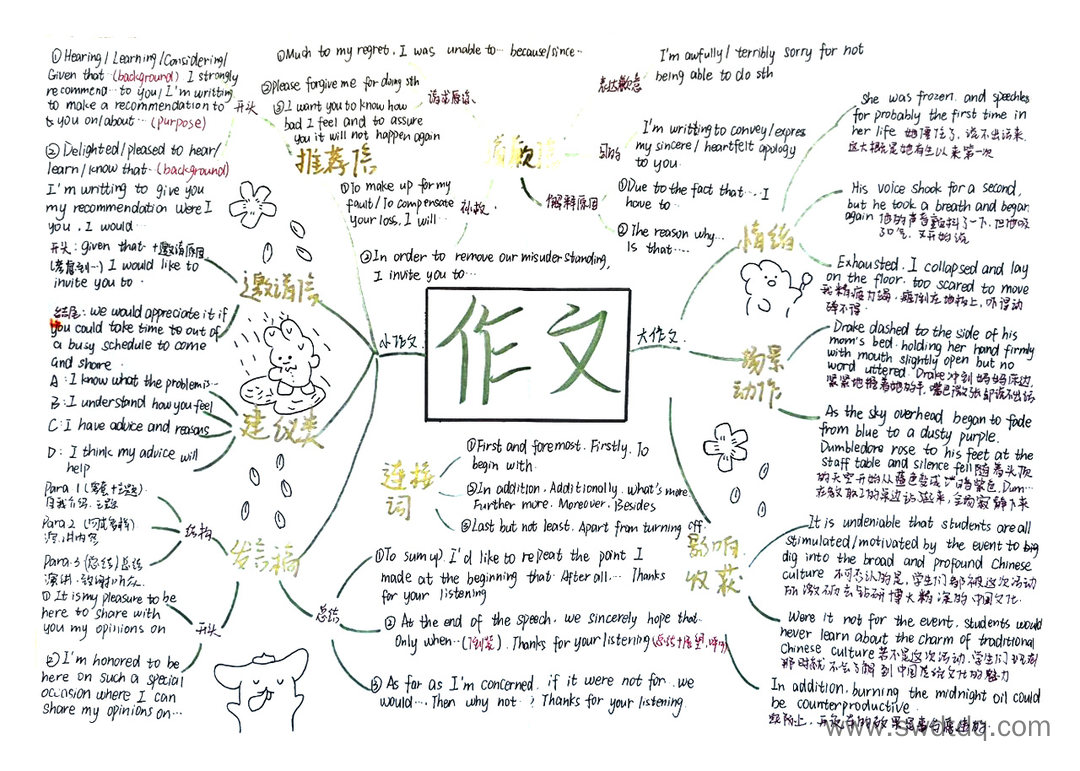 ①Hearing/Learning/Considering/
Given that…(background) I strongly
recommend… to you/I'm writting
to make a recommendation to
you on/about…(purpose)
开头
② Delighted/pleased to hear/
learn/know that…(background)
I'm writting to give you
my recommendation were I
you, I would…
推荐信
①Much to my regret, I was unable to… because/since…
②Please forgive me for doing sth
③I want you to know how
bad I feel and to assure
you it will not happen again
请求原谅
表达歉意
I'm awfully/terribly sorry for not
being able to do sth
目的
I'm writting to convey/expres
my sincere/heartfelt apology
to you.
解释原因
①Due to the fact that…, I
have to…
② The reason why…
Is that……
补救
①To make up for my
fault/To compensate
your loss, I will…
②In order to remove our misunderstanding,
I invite you to…
邀请信
开头: given that +邀请原因
I would like to
invite you to
结尾: we would appreciate it if
you could take time to out of
a busy schedule to come
and share
小作文
作文
大作文
建议类
A: I know what the problem is…
B: I understand how you feel
C: I have advice and reasons
D: I think my advice will
help
发言稿
结构
Para 1
自我介绍,主题
Para 2
Para 3 (总结)总结
开头
① It is my pleasure to be
here to share with
you my opinions on
② I'm honored to be
here on such a special
occasion where I can
share my opinions on…
总结
①To sum up, I'd like to repeat the point I
made at the beginning that. After all,… Thanks
for your listening
② At the end of the speech, we sincerely hope that
Only when…(倒装). Thanks for your listening
③ As far as I'm concerned, if it were not for, we
would… Then why not ? Thanks for your listening.
连接
词
①First and foremost, Firstly, To
begin with
②In addition, Additionally, what's more
Further more, Moreover, Besides
③Last but not least, Apart from turning off
情绪
She was frozen, and speechles
for probably the first time in
her life 她僵住了,说不出话来,
这大概是她有生以来第一次
His voice shook for a second,
but he took a breath and began
again 他的声音颤抖了一下,但他吸
了口气,又开始说
Exhausted, I collapsed and lay
on the floor, too scared to move
我精疲力竭,瘫倒在地板上,吓得动
弹不得
场景
动作
Drake dashed to the side of his
mom's bed, holding her hand firmly
with mouth slightly open but no
word uttered. Drake冲到妈妈床边,
紧紧地握着她的手,嘴巴微张却说不出话
As the sky overhead began to fade
from blue to a dusty purple,
Dumbledore rose to his feet at the
staff table and silence fell 随着头顶
的天空开始从蓝色变成
影响
收获
It is undeniable that students are all
stimulated/motivated by the event to big
dig into the broad and profound Chinese
culture 不可否认的是,学生们都被这次活动
所激励去钻研博大精深的中国文化
Were it not for the event, students would
never learn about the charm of traditional
Chinese culture 若不是这次活动,学生们
In addition, burning the midnight oil could
be counterproductive
www.swdtdq.com